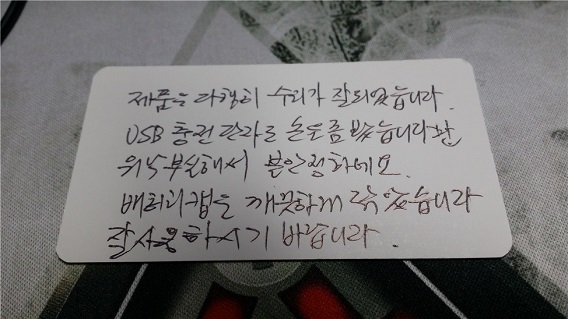 제품은 다행히 수리가 잘되었습니다.
USB 충전단자로 손도좀 봤습니다만
워낙 부실해서 불안정하네요.
배터리캡은 깨끗하게 닦았습니다
잘사용하시기 바랍니다.